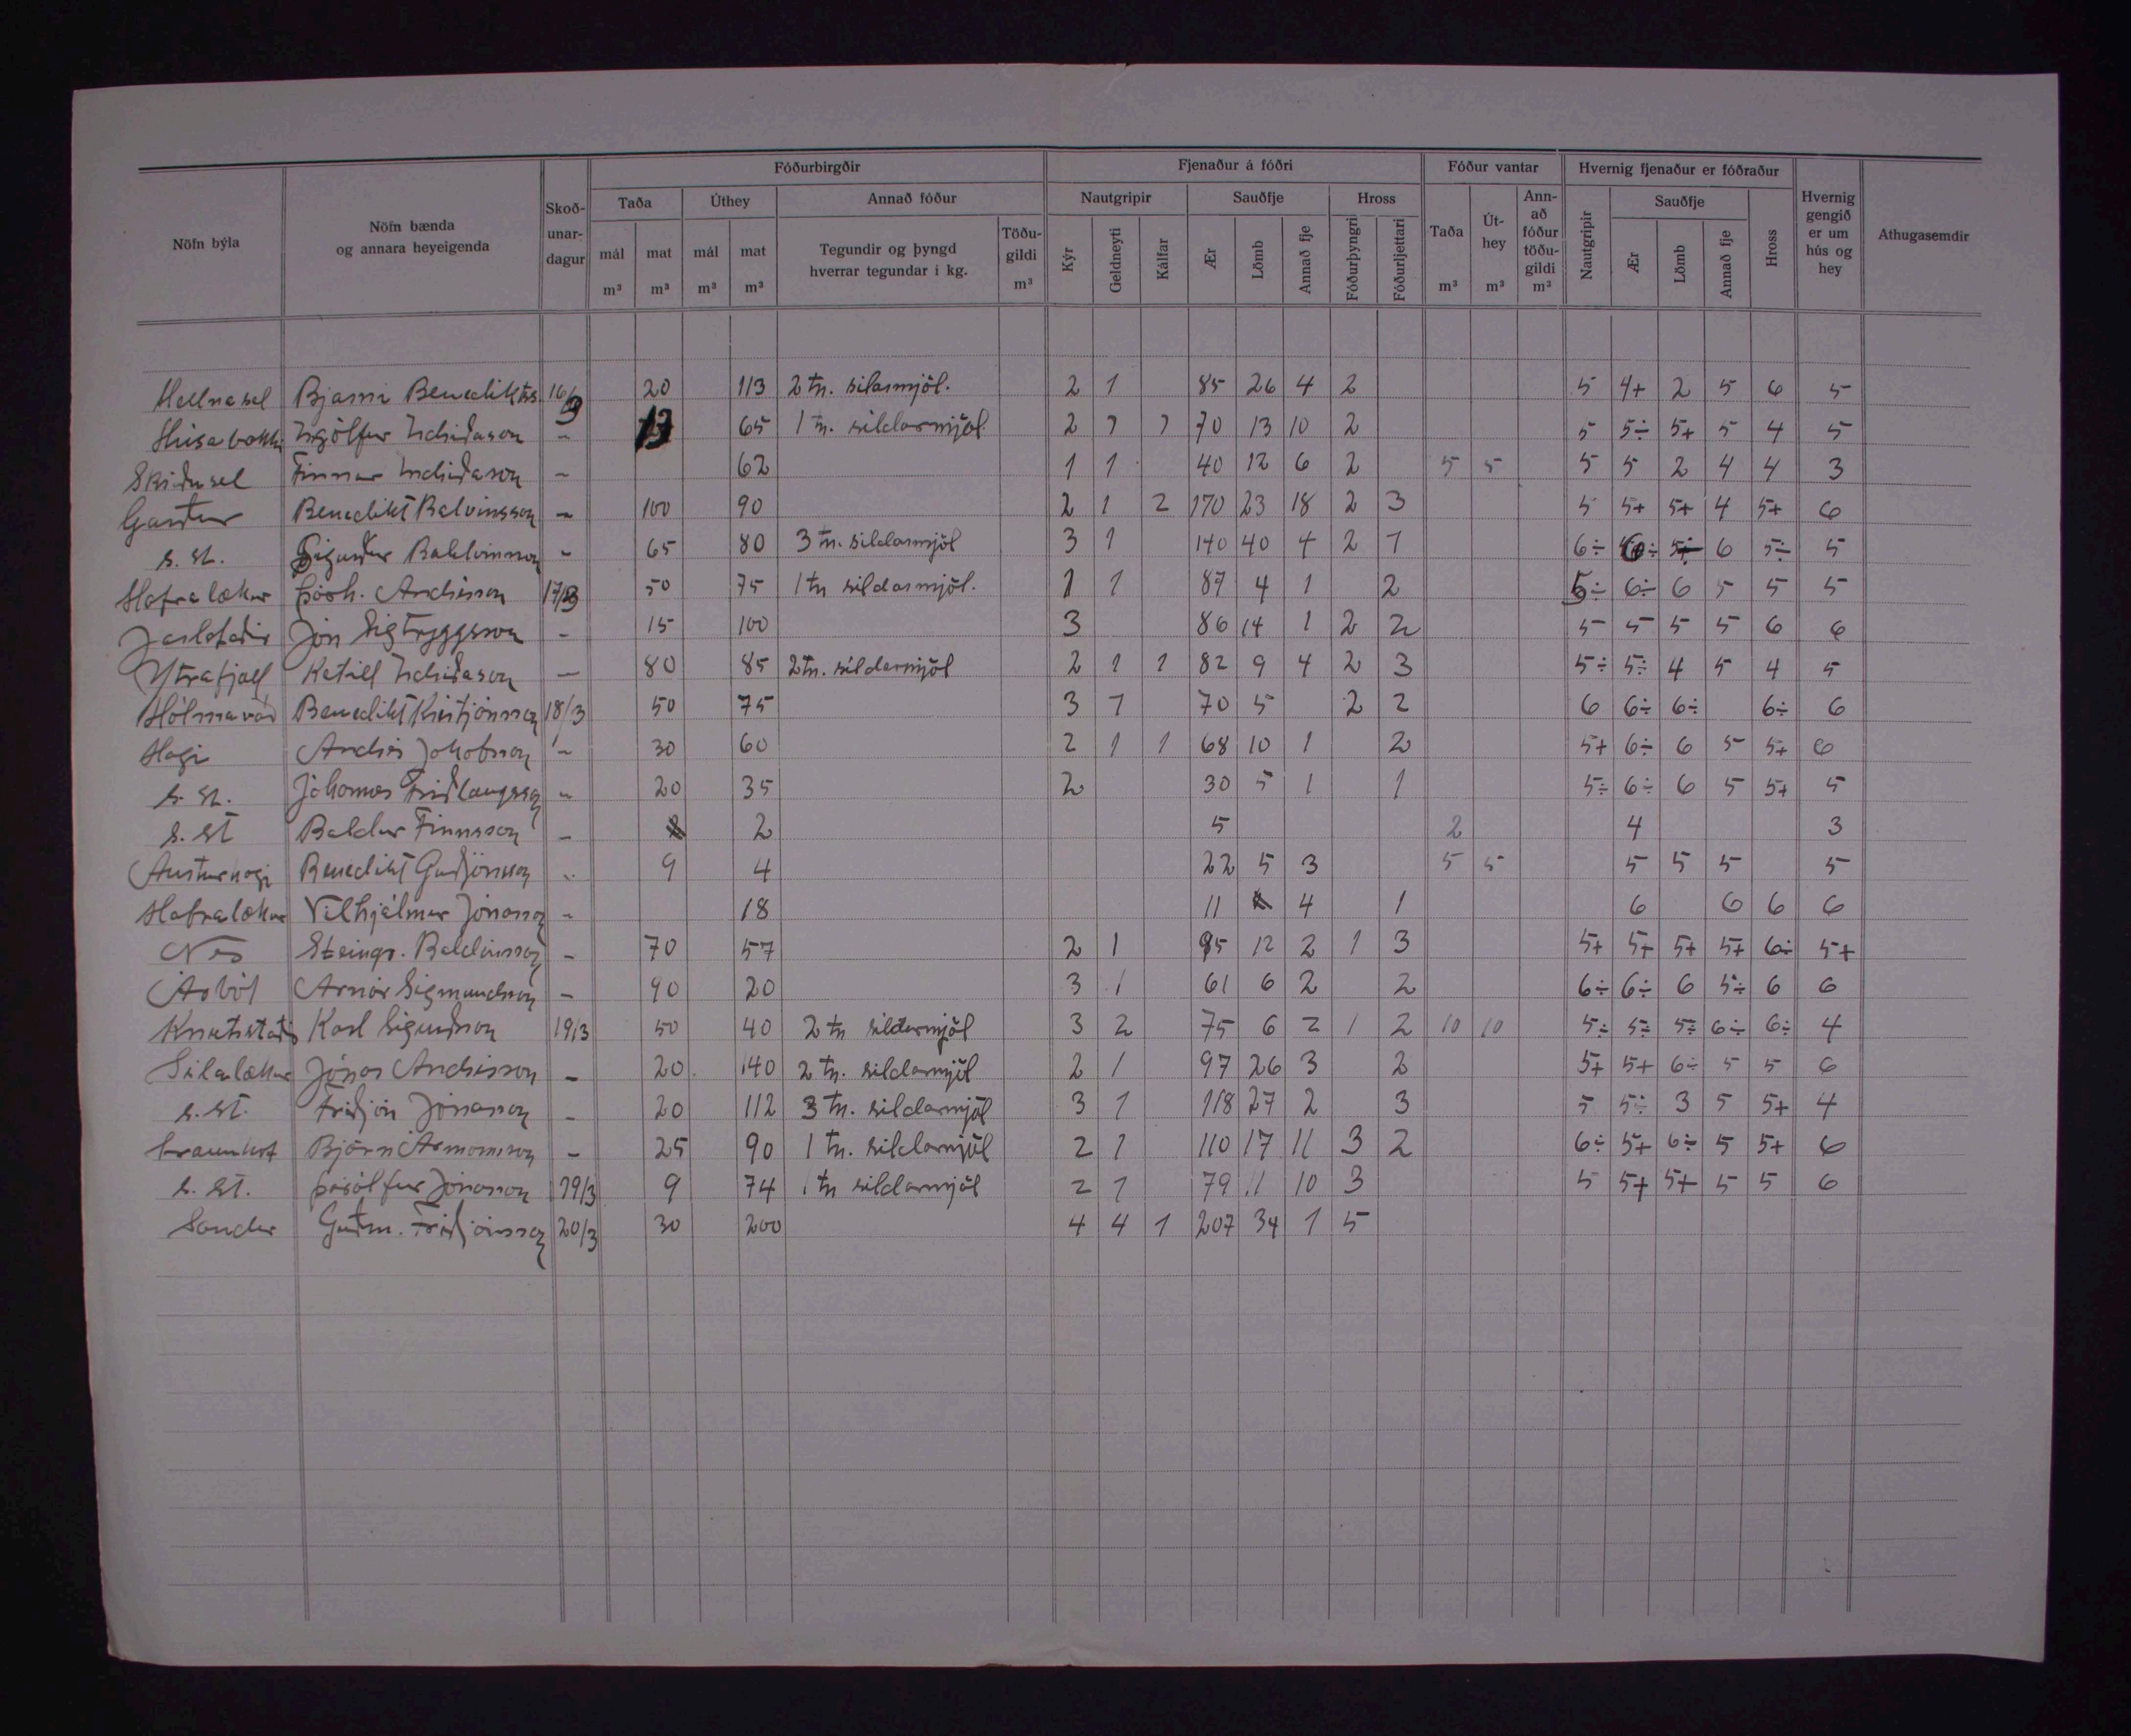 Fóðurbirgðir Fjenaður á fóðri Fóður vantar Hvernig fjenaður er fóðraður
Nöfn býla Nöfn bænda og annara heyeigenda Skoð-unar-dagur Taða Úthey Annað fóður Nautgripir Sauðfje Hross Taða Út-hey Ann-að fóður töðu-gildi Nautgripir Sauðfje Hross Hvernig gengið er um hús og hey Athugasemdir
mál mat mál mat Tegundir og þyngd hverrar tegundar í kg. Töðu-gildi Kýr Geldneyti Kálfar Ær Lömb Annað fje Fóðurþyngri Fóðurljettari Ær Lömb Annað fje
m³ m³ m³ m³ m³ m³ m³ m³
Hellnasel Bjarni Benediktss. 16/3 20 113 2 tn. silarmjöl. 2 1 85 26 4 2 5 4+ 2 5 6 5
Húsabakki Ingólfur Indriðason - 13 65 1 tn. sildarmjöl 2 1 1 70 13 10 2 5 5÷ 5+ 5 4 5
Skriðusel Finnur Indriðason - 62 1 1 40 12 6 2 5 5 5 5 2 4 4 3
Garður Benedikt Balvinsson - 100 90 2 1 2 170 23 18 2 3 5 5+ 5+ 4 5+ 6
s. st. Sigurður Baldvinsson - 65 80 3 tn. sildarmjöl 3 1 140 40 4 2 1 6÷ 6÷ 5÷ 6 5÷ 5
Hafralækur Þórh. Andrésson 17/3 50 75 1 tn sildarmjöl. 1 1 87 4 1 2 5÷ 6÷ 6 5 5 5
Jarlstaðir Jón Sigtryggsson - 15 100 3 86 14 1 2 2 5 5 5 5 6 6
Ytrafjall Ketill Indriðason - 80 85 2 tn. sildarmjöl 2 1 1 82 9 4 2 3 5÷ 5÷ 4 5 4 5
Hólmavað Benedikt Kristjánsson 18/3 50 75 3 1 70 5 2 2 6 6÷ 6÷ 6÷ 6
Hagi Andrés Jakobsson - 30 60 2 1 1 68 10 1 2 5+ 6÷ 6 5 5+ 6
s. st. Jóhannes Friðlaugsson - 20 35 2 30 5 1 1 5÷ 6÷ 6 5 5+ 5
s. st Baldur Finnsson - 2 5 2 4 3
Austurhagi Benedikt Guðjónsson - 9 4 22 5 3 5 5 5 5 5 5
Hafralækur Vilhjálmur Jónasson - 18 11 4 1 6 6 6 6
Nes Steingr. Baldvinsson - 70 57 2 1 95 12 2 1 3 5+ 5+ 5+ 5+ 6÷ 5+
Árbót Arnór Sigmundsson - 90 20 3 1 61 6 2 2 6÷ 6÷ 6 5÷ 6 6
Knútsstaðir Karl Sigurðsson 19/3 50 40 2 tn sildarmjöl 3 2 75 6 2 1 2 10 10 5÷ 5÷ 5÷ 6÷ 6÷ 4
Sílalækur Jónas Andrésson - 20 140 2 tn. sildarmjöl 2 1 97 26 3 2 5+ 5+ 6÷ 5 5 6
s. st. Friðjón Jónasson - 20 112 3 tn. sildarmjöl 3 1 118 27 2 3 5 5÷ 3 5 5+ 4
Björn Ármannsson - 25 90 1 tn. sildarmjöl 2 1 110 17 11 3 2 6÷ 5+ 6÷ 5 5+ 6
s. st. Þórólfur Jónasson 19/3 9 74 1 tn sildarmjöl 2 1 79 11 10 3 5 5+ 5+ 5 5 6
Sandur Guðm. Friðjónsson 20/3 30 200 4 4 1 207 34 1 5